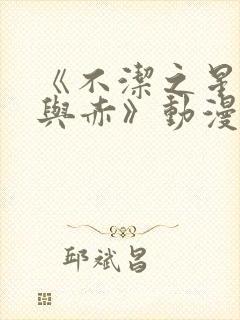 《不潔之星
與赤》動漫
邱斌昌